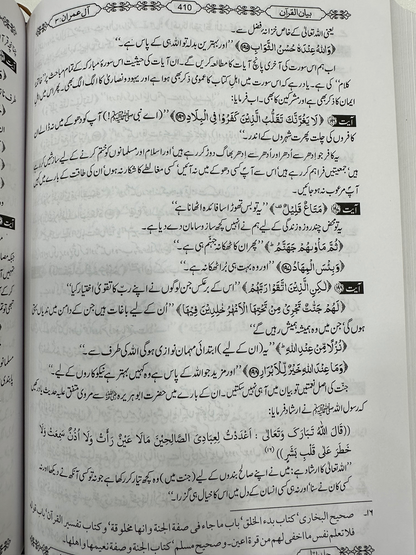 آل عمران ۳
410
بیان القرآن
یعنی اللہ تعالیٰ کے خاص خزانۂ فضل سے۔
﴿وَاللّٰهُ عِنْدَهٗ حُسْنُ الثَّوَابِ﴾ ’’اور بہترین بدلہ تو اللہ ہی کے پاس ہے۔‘‘
اب ہم اس سورت کی آخری پانچ آیات کا مطالعہ کریں گے۔ ان آیات کی حیثیت اس سورۂ مبارکہ کے تمام مباحث پر
کلام‘‘ کی ہے۔ یاد رہے کہ اس سورت میں اہل کتاب کا عمومی ذکر بھی ہوا ہے اور یہود و نصاریٰ کا الگ الگ بھی۔
ایمان کا ذکر بھی ہے اور مشرکین کا بھی۔ اب فرمایا:
﴿لَا يَغُرَّنَّكَ تَقَلُّبُ الَّذِيْنَ كَفَرُوْا فِي الْبِلَادِ﴾ ’’(اے نبی ﷺ!) آپ کو دھوکے میں نہ ڈالے ان
کافروں کی چلت پھرت شہروں کے اندر۔‘‘
یہ کافر جو اِدھر سے اُدھر اور اُدھر سے اِدھر بھاگ دوڑ کر رہے ہیں اور اسلام اور مسلمانوں کو ختم کرنے کے لیے
جمعیتیں فراہم کر رہے ہیں اس سے آپ کسی دھوکے میں نہ آئیں، کسی مغالطے کا شکار نہ ہوں، ان کی طاقت کے بارے میں
آپ مرعوب نہ ہو جائیں۔
آیت ۱۹۷ ﴿مَتَاعٌ قَلِيْلٌ﴾ ’’یہ تو بس تھوڑا سا فائدہ اٹھانا ہے‘‘
یہ تو محض چند روزہ زندگی کے لیے ہم نے انہیں کچھ ساز و سامان دے دیا ہے۔
﴿ثُمَّ مَاْوٰىهُمْ جَهَنَّمُ﴾ ’’پھر ان کا ٹھکانہ جہنم ہی ہے۔‘‘
﴿وَبِئْسَ الْمِهَادُ﴾ ’’اور وہ بہت ہی بُرا ٹھکانہ ہے۔‘‘
آیت ۱۹۸ ﴿لٰكِنِ الَّذِيْنَ اتَّقَوْا رَبَّهُمْ﴾ ’’اس کے برعکس جن لوگوں نے اپنے رب کا تقویٰ اختیار کیا‘‘
﴿لَهُمْ جَنّٰتٌ تَجْرِيْ مِنْ تَحْتِهَا الْاَنْهٰرُ خٰلِدِيْنَ فِيْهَا﴾ ’’اُن کے لیے باغات ہیں جن کے دامن میں ندیاں بہتی
ہوں گی جن میں وہ ہمیشہ ہمیش رہیں گے‘‘
﴿نُزُلًا مِّنْ عِنْدِ اللّٰهِ﴾ ’’یہ (ان کے لیے) ابتدائی مہمان نوازی ہوگی اللہ کی طرف سے۔‘‘
﴿وَمَا عِنْدَ اللّٰهِ خَيْرٌ لِّلْاَبْرَارِ﴾ ’’اور مزید جو اللہ کے پاس ہے وہ کہیں بہتر ہے نیکوکاروں کے لیے۔‘‘
جنت کی اصل نعمتیں تو بیان میں آ ہی نہیں سکتیں۔ ان کے بارے میں حضرت ابوہریرہ رضی اللہ عنہ سے مروی متفق علیہ حدیث
کہ رسول اللہ ﷺ نے ارشاد فرمایا:
((قَالَ اللّٰهُ تَبَارَكَ وَتَعَالٰى: اَعْدَدْتُ لِعِبَادِيَ الصَّالِحِيْنَ مَالَا عَيْنٌ رَأَتْ وَلَا اُذُنٌ سَمِعَتْ وَلَا
خَطَرَ عَلٰى قَلْبِ بَشَرٍ))
’’اللہ تعالیٰ کا ارشاد ہے: میں نے اپنے صالح بندوں کے لیے (جنت میں) وہ کچھ تیار کر رکھا ہے جو نہ تو کسی آنکھ نے دیکھا اور نہ
کسی کان نے سنا اور نہ ہی کسی انسان کے دل میں اس کا خیال ہی گزرا۔‘‘
صحیح البخاری، کتاب بدء الخلق، باب ما جاء فی صفة الجنة وانها مخلوقة۔ وکتاب تفسیر القرآن، باب قوله
فلا تعلم نفس ما اخفی لهم من قرة اعین۔ وصحیح مسلم، کتاب الجنة وصفة نعیمها واهلها۔